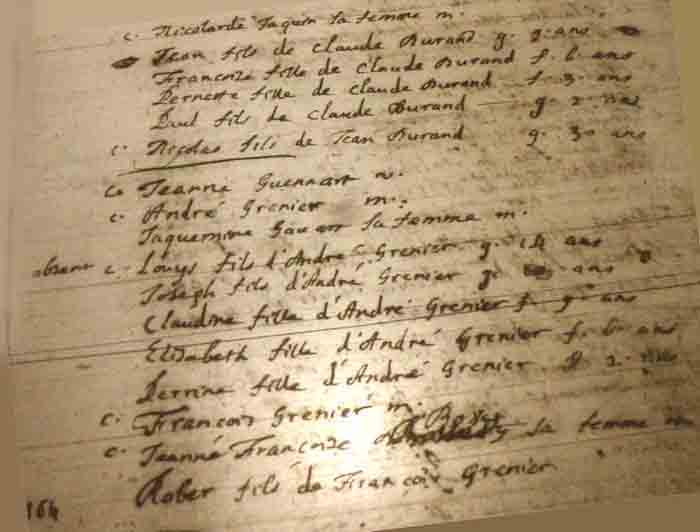 c. Nicolarde Jaquen sa femme m.
Jean fils de Claude Durand g. 9. ans
Francoise fille de Claude Durand f. 6. ans
Pernette fille de Claude Durand f. 3. ans
Paul fils de Claude Durand g. 2. ans
c. Nicolas fils de Jean Durand g. 30 ans
c. Jeanne Guennart v.
c. André Grenier m.
Jaquemine sa femme m.
absent c. Louys fils d'André Grenier g. 14 ans
Joseph fils d'André Grenier g. ans
Claudine fille d'André Grenier f. 9. ans
Elisabeth fille d'André Grenier f. 6. ans
Perrine fille d'André Grenier f. 2. ans
c. Francois Grenier m.
c. Jeanne Francoise sa femme m
Rober fils de Francois Grenier
164